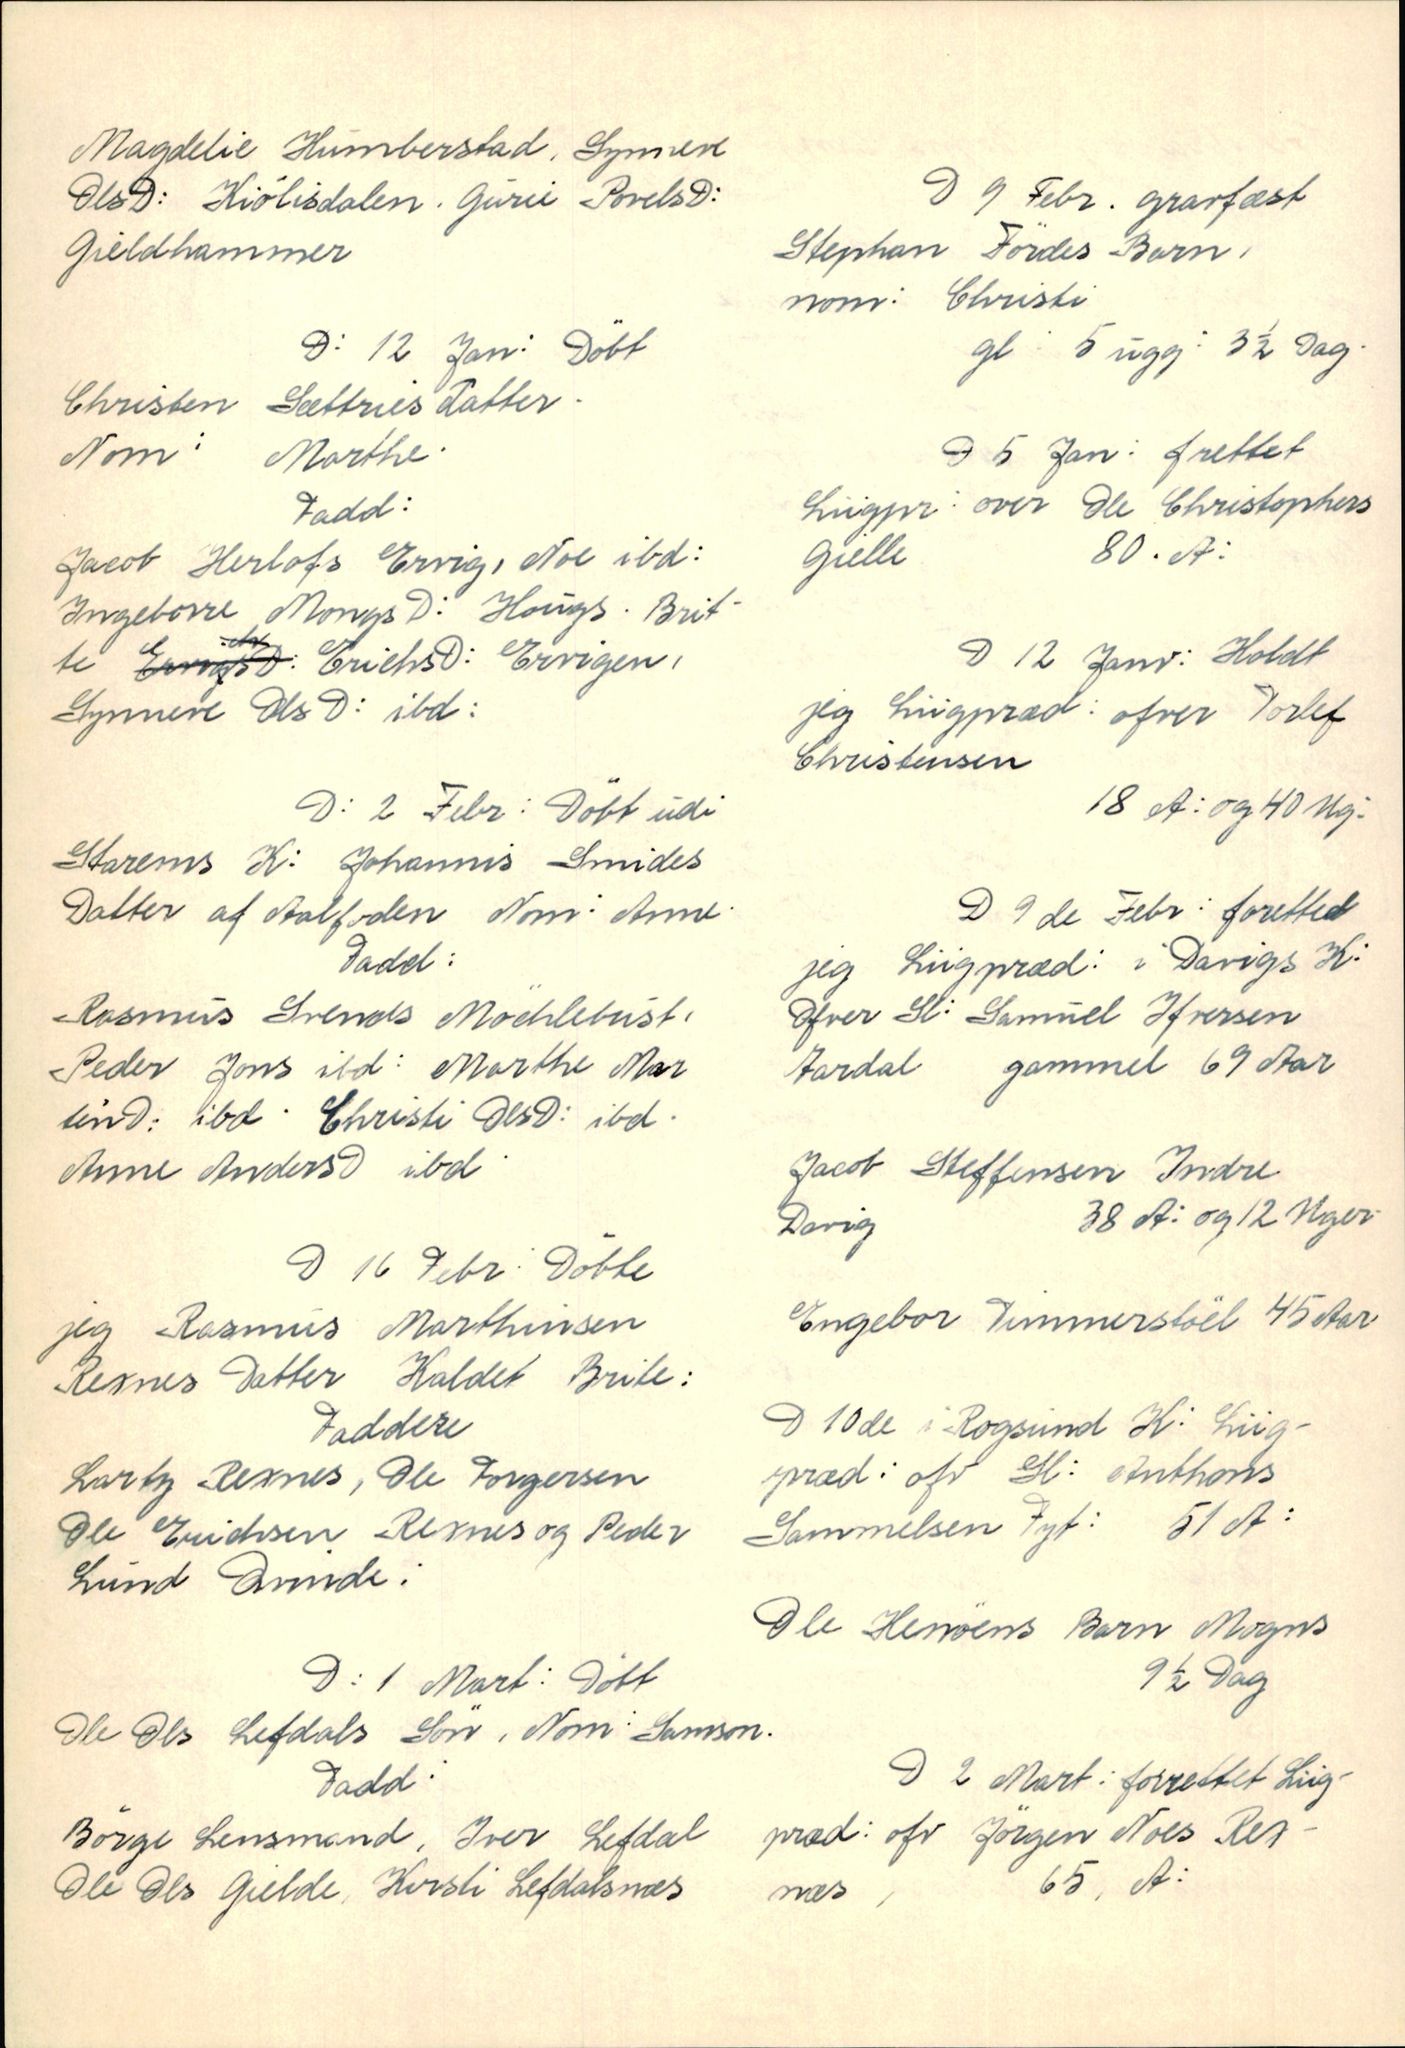 Magdelie Humberstad, Synneve
OlsD: Kiölisdalen. Gurie PovelsD:
Gieldhammer
D: 12 Jan: Döbt
Christen Sættries Datter.
Nom: Marthe.
Fadd:
Jacob Herlofs Ervig, Noe ibd:
Ingeborre MongsD: Hougs. Brit-
te ErichsD: Ervigen,
Synneve OlsD: ibd:
D: 2 Febr: Döbt udi
Starems K: Johannis Smides
Datter af Aalfoden Nom: Anne.
Fadd:
Rasmus Svends Möchlebust,
Peder Jons ibd: Marthe Mar
tinD: ibd. Christi OlsD: ibd.
Anne AndersD ibd.
D 16 Febr: Döbte
jeg Rasmus Marthinsen
Rexnes Datter Kaldet Brite:
Faddere
Lartz Rexnes, Ole Torgersen
Ole Erichsen Rexnes og Peder
Lund Qvinde:
D: 1 Mart: Döbt
Ole Ols Lefdals Sön, Nom: Samson.
Fadd:
Börge Lensmand, Iver Lefdal
Ole Ols Gielde, Kirsti Lefdalsnæs
D 9 Febr. gravfæst
Stephan Fördes Barn,
nom: Christi
gl: 5 ugg: 3½ Dag.
D 5 Jan: frettet
Liigpr: over Ole Christophers
Gielle 80. A:
D 12 Janv: Holdt
jeg Liigpræd: ofver Torlef
Christensen
18 A: og 40 Ug:
D 9 de Febr: foretted
jeg Liigpræd: i Davigs K:
Ofver Sl: Samuel Ifversen
Aardal gammel 69 Aar
Jacob Steffensen Indre
Davig 38 A: og 12 Uger.
Engebor Timmerstöel 45 Aar
D 10de i Rogsund K: Liig-
præd: ofv Sl: Anthons
Sammelsen Tyt: 51 A:
Ole Henöens Barn Mogns
9½ Dag
D 2 Mart: forrettet Liig-
præd: ofv Jörgen Noes Rex-
næs, 65, A: